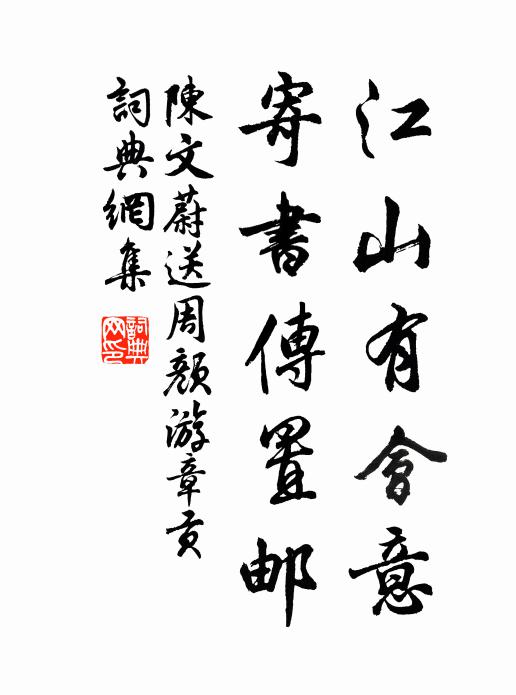 江山有會意
寄書傳置邮
陳文蔚送周顏游章貢
詞典網集
詞典网印